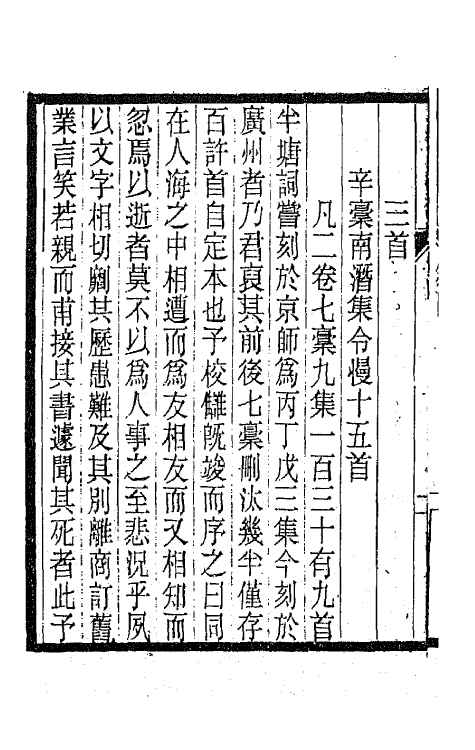 三首
辛稾南潛集令慢十五首
凡二卷七稾九集一百三十有九首
半塘詞嘗刻於京師爲丙丁戊三集今刻於
廣州者乃君裒其前後七稾刪汰幾半僅存
百許首自定本也予校讎既竣而序之曰同
在人海之中相遭而爲友相友而又相知而
忽焉以逝者莫不以爲人事之至悲況乎夙
以文字相切劘其歷患難及其別離商訂舊
業言笑若親而甫接其書遽聞其死者此予